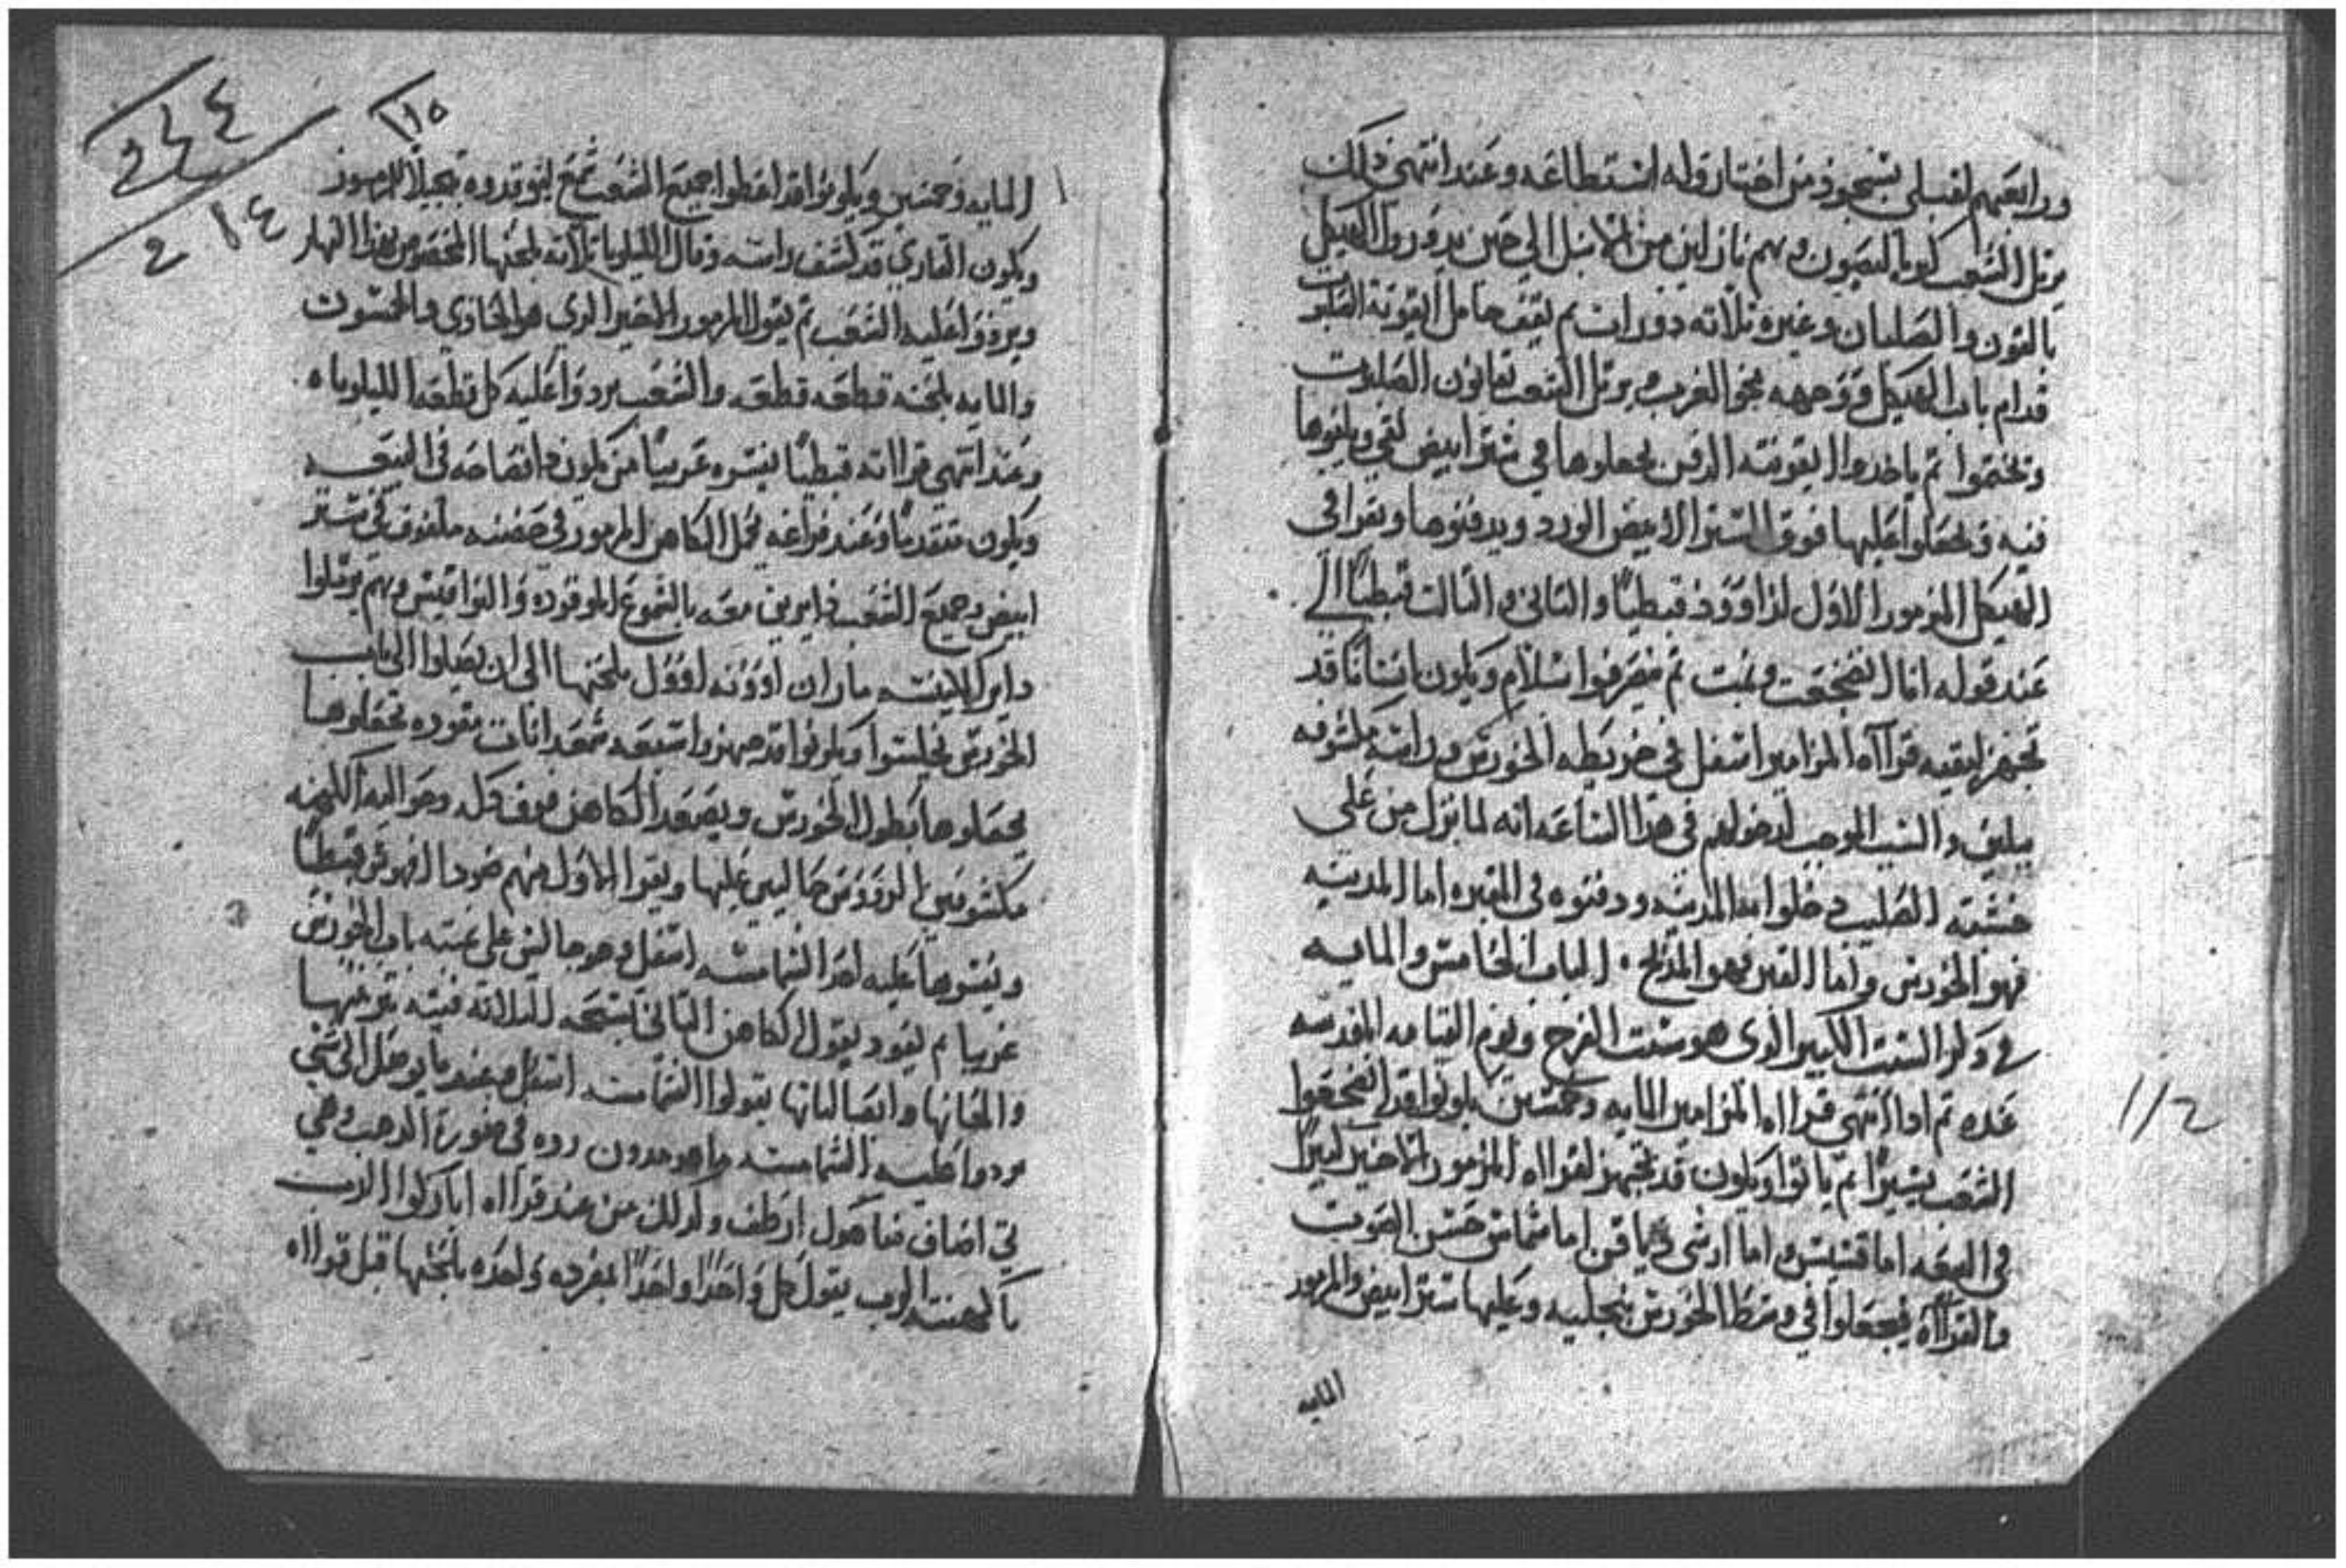 ورابعهم لقبلي بسجود من اختار وله استطاعه وعند انتهى ذلك
يرتل الشعب كوياليصون وهم نازلين من الانبل الى حين يدوروا الهيكل
بالقون والصلبان وغيره تلاته دورات تم يقف حامل القونة الصلبوت
قدام باب الهيكل ووجهه نحو الغرب ويرتل الشعب بقانون الصلبوت
وتختموا تم ياخدوا اليقونة الدفن يجعلوها في ستر ابيض نقي ويلفوها
فيه ويجعلوا عليها فوق الستر الابيض الورد ويدفنوها ويقرا في
الهيكل المزمور الاول لداوود قبطيا والتاني والتالت قبطيا الي
عند قوله انا انضجعت ونمت تم ينصرفوا بسلام ويكون انسانا قد
تجهز لبقيه قرااه المزامير اسفل في خريطه الخورس وراسه مكشوفه
يليق والسبب الموجب لدخولهم في هدا الساعه انه لما نزل من على
خشبته الصليب دخلوا به المدينه ودفنوه في المقبره اما المدينه
فهو الخورس واما القبر فهو المدبح . الباب الخامس والمايه
في دكر السبت الكبير الدى هو سبت الفرح ويوم القيامه المقدسه
غده تم ادا انتهى قرااه المزامير المايه وخمسين يكونوا قد انضجعوا
الشعب يسيرا تم ياتوا ويكون قد تجهز لقرااه المزمور الاخير كبيرا
في البيعه اما قسيس واما ارشي دياقن اما شماس حسن الصوت
والقرااه فيجعلوا في وسط الخورس منجليه وعليها ستر ابيض والمزمور
المايه
112
المايه وخمسين ويكونوا قد اعطوا جميع الشعب شمع ليوقدوه تبجيلا للمزمور
ويكون القاري قد كشف راسه وقال الليلويا تلاته بلحنها المخصوص بهذا النهار
ويردوا عليه الشعب تم يقول المزمور الاخير الدي هو الحادي والخمسون
والمايه بلحنه قطعه قطعه والشعب يردوا عليه كل قطعه الليلوياه
وعند انتهى قرااته قبطيا يفسره عربيا من يكون دا فصاحه في البيعه
ويكون متقدما وعند فراغه يحمل الكاهن المزمور في حضنه ملفوف في ستر
ابيض وجميع الشعب دايرين معه بالشموع الموقوده والنواقيس وهم يرتلوا
داير الكنيسه ماران بلحنها الى ان يصلوا الى باب
الخورس فيجلسوا ويكونوا قد جهزوا سبعه شمعدانات بقوده تجعلوها
يجعلوها بطول الخورس ويصعد الكاهن فوق دكه وحواليه الكهنه
مكشوفين الرووس جالسين عليها ويقرا الاول منهم قبطيا
ويفسرها عليه احد الشمامسه اسفل وهو جالس على عتبه باب الخورس
عربيا تم يعود يقول الكاهن التاني تسبحه التلاته فتيه
والحانها وابصالياتها يتولوا الشمامسه اسفل وعندما يوصل الى شي
يردوا عليه الشمامسه ما هو مدون رده في صورة الدهب وهي
وكدلك من عند قرااه اباركوا الرب
يا كهنة الرب يقول كل واحدا واحدا بمفرده واحده بلحنها قبل قرااه
١١٥
٢١٤